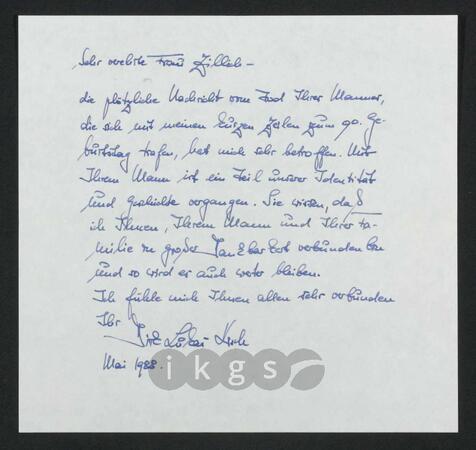 Sehr verehrte Frau Zillich –
die plötzliche Nachricht vom Tod Ihres Mannes,
die sich mit meinen kurzen Zeilen zum 90. Ge-
burtstag trafen, hat mich sehr betroffen. Mit
Ihrem Mann ist ein Teil unserer Identität
und Geschichte vergangen. Sie wissen, daß
ich Ihnen, Ihrem Mann und Ihrer Fa-
milie in großer Dankbarkeit verbunden bin
und so wird es auch weiter bleiben.
Ich fühle mich Ihnen allen sehr verbunden
Ihr
Mai 1988.
ikgs